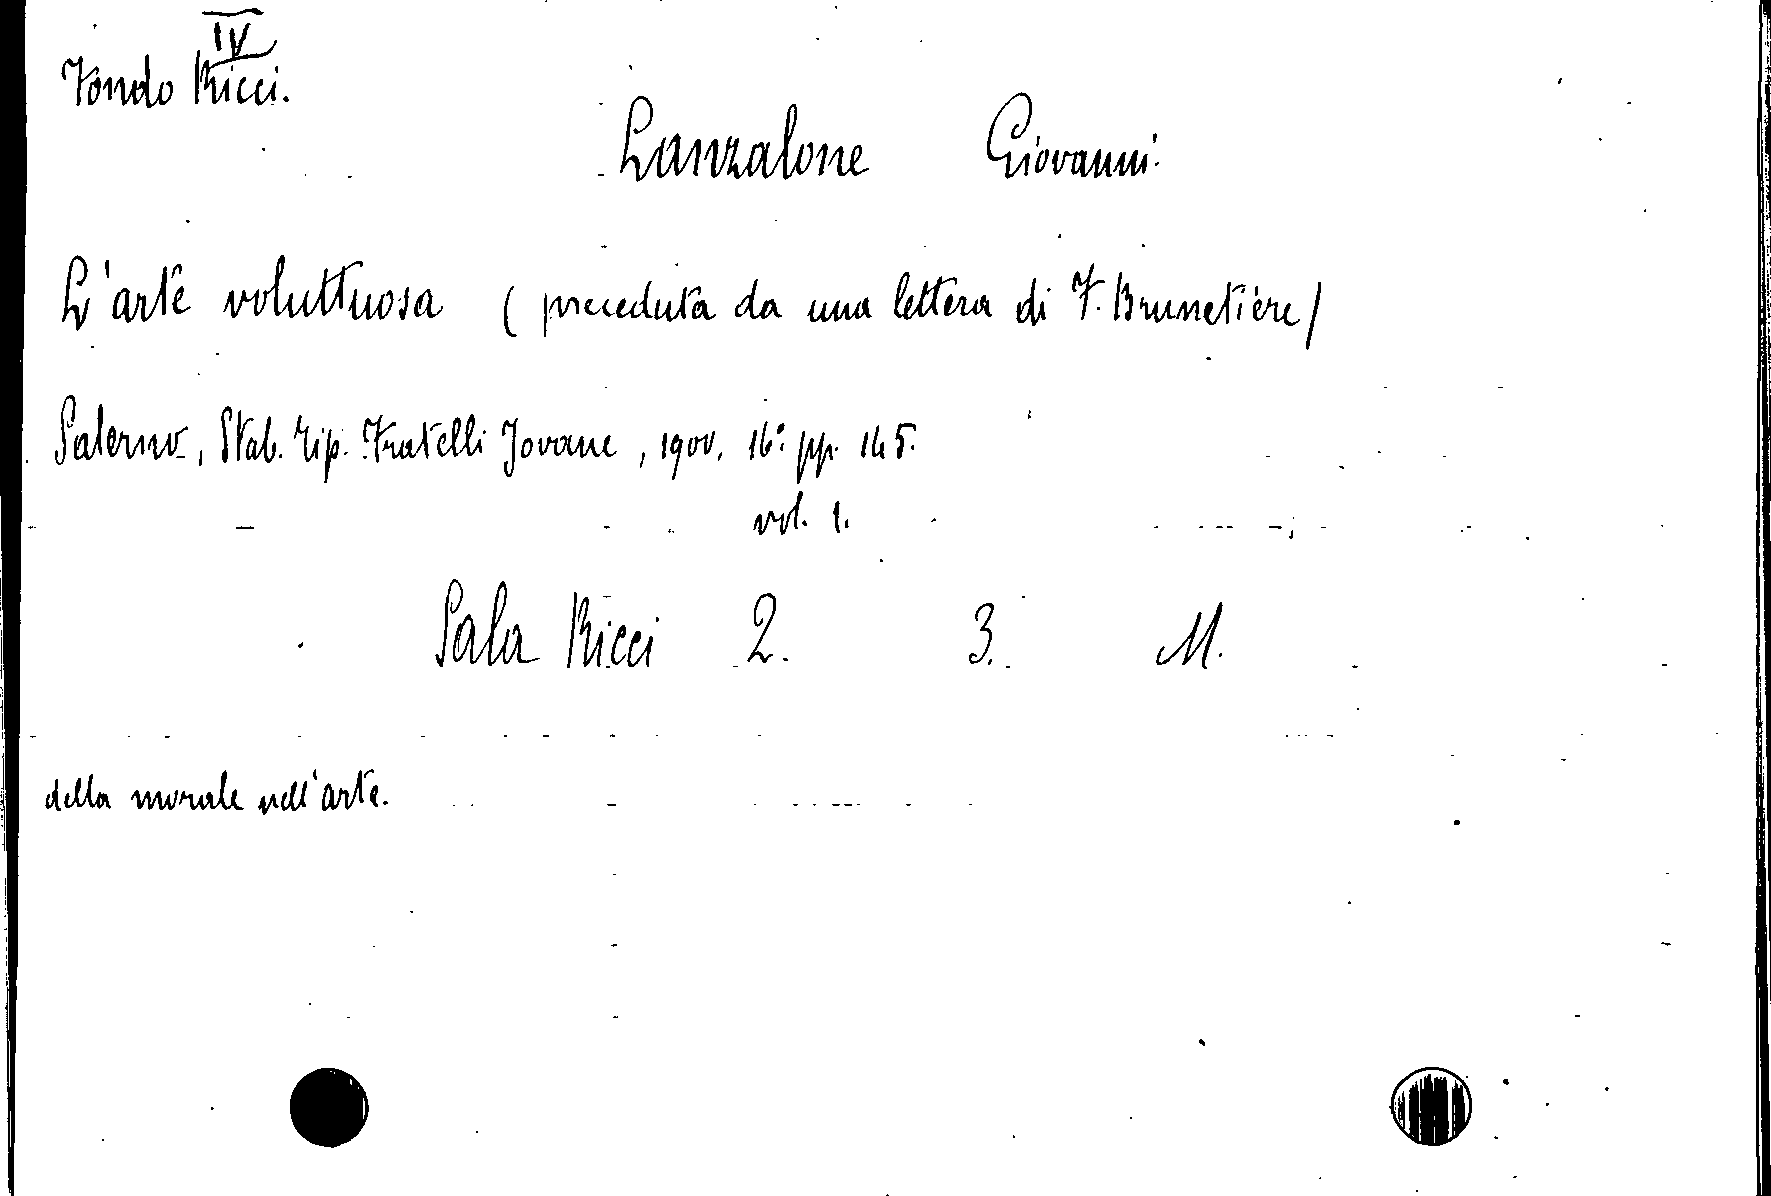 IV
Fondo Ricci.
Lanzalone Giovanni.
L'arte voluttuosa (preceduta da una lettera di F. Brunetière)
Salerno, Stab. Tip. Fratelli Jovane, 1900. 16º. pp. 145.
vol. 1.
Sala Ricci 2. 3. M.
della morale nell'arte.